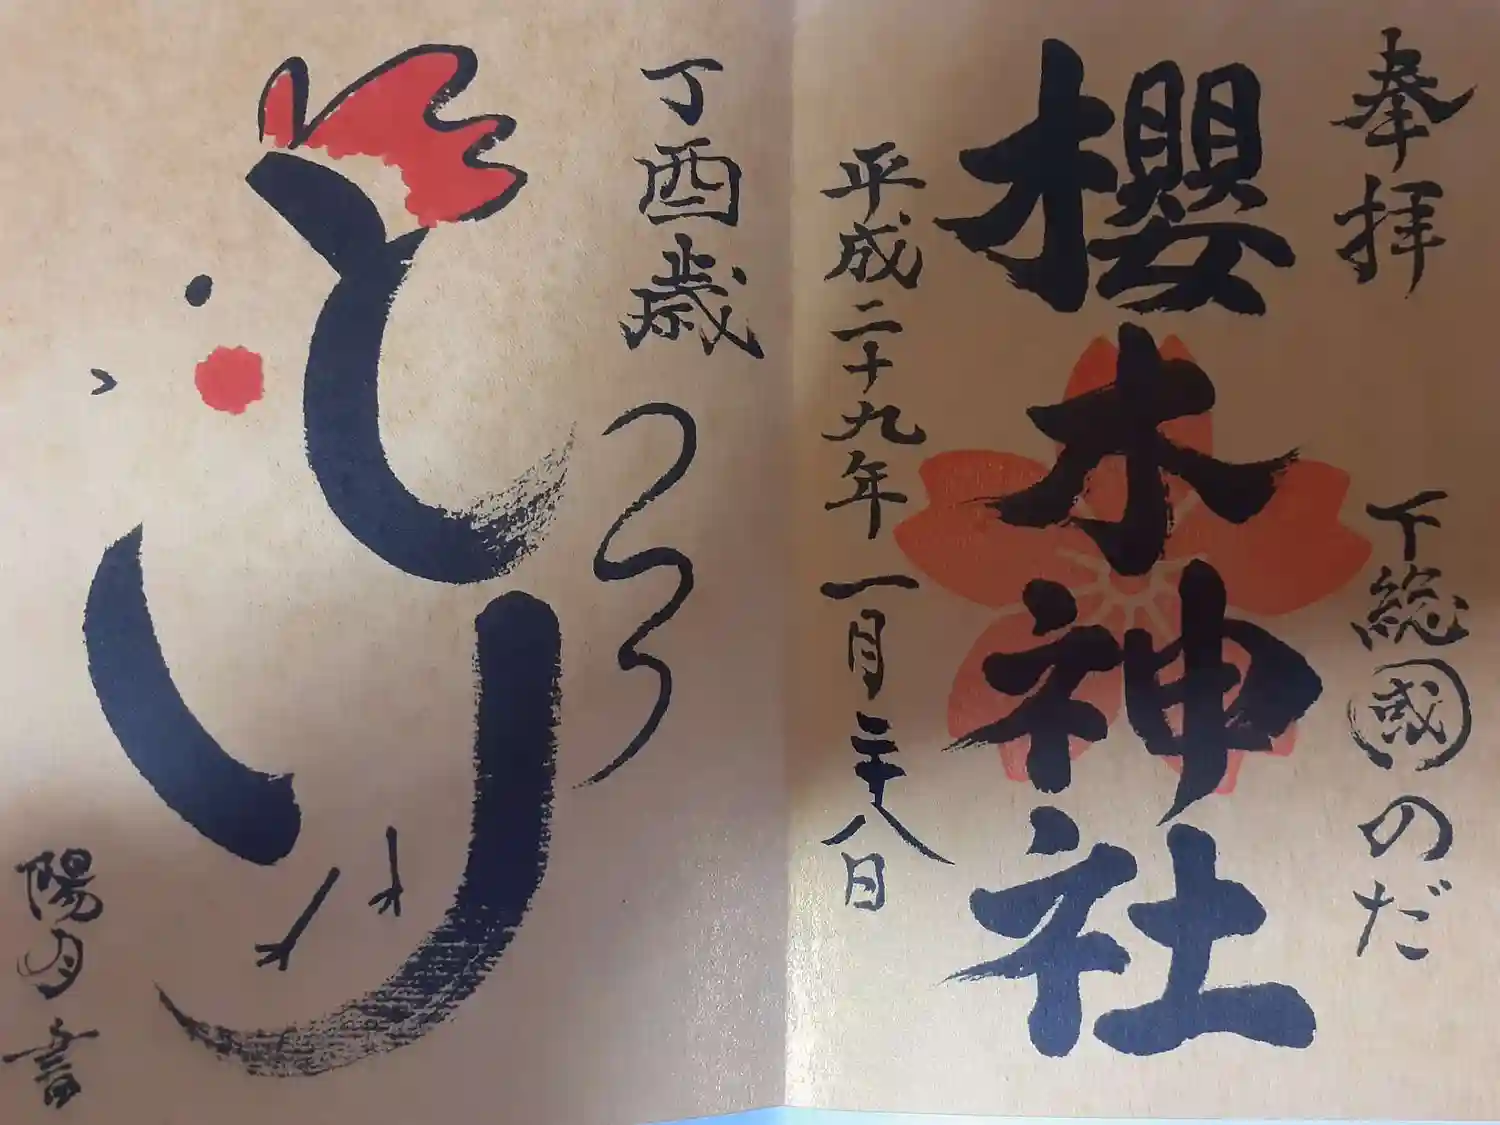 奉拝
下総國のだ
櫻木神社
平成二十九年一月二十八日
丁酉歳
とり
陽月書